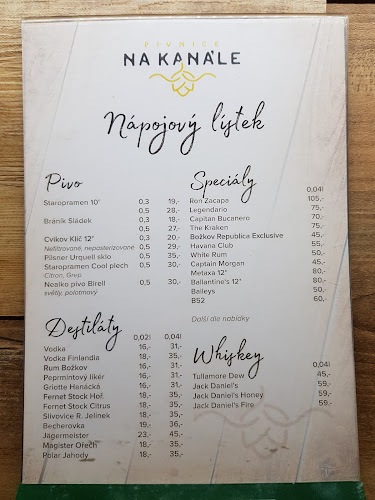 PIVNICE
NA KANÁLE
Nápojový lístek
Pivo
Staropramen 10° 0,3 19,-
0,5 28,-
Bráník Sládek 0,3 18,-
0,5 27,-
Cvikov Klíč 12° 0,3 20,-
Nefiltrované, nepasterizované 0,5 29,-
Pilsner Urquell sklo 0,5 35,-
Staropramen Cool plech 0,5 30,-
Citron, Grep
Nealko pivo Birell 0,5 30,-
světlý, polotmavý
Destiláty
0,02l 0,04l
Vodka 16,- 31,-
Vodka Finlandia 18,- 35,-
Rum Božkov 16,- 31,-
Peprmintový likér 16,- 31,-
Griotte Hanácká 16,- 31,-
Fernet Stock Hoř. 18,- 35,-
Fernet Stock Citrus 18,- 35,-
Slivovice R. Jelínek 18,- 35,-
Becherovka 19,- 36,-
Jägermeister 23,- 45,-
Magister Ořech 18,- 35,-
Polar Jahody 18,- 35,-
Speciály
0,04l
Ron Zacapa 105,-
Legendario 75,-
Capitan Bucanero 70,-
The Kraken 75,-
Božkov Republica Exclusive 45,-
Havana Club 55,-
White Rum 50,-
Captain Morgan 45,-
Metaxa 12* 80,-
Ballantine's 12° 80,-
Baileys 50,-
B52 60,-
Další dle nabídky
Whiskey
0,04l
Tullamore Dew 45,-
Jack Daniel's 59,-
Jack Daniel's Honey 59,-
Jack Daniel's Fire 59,-